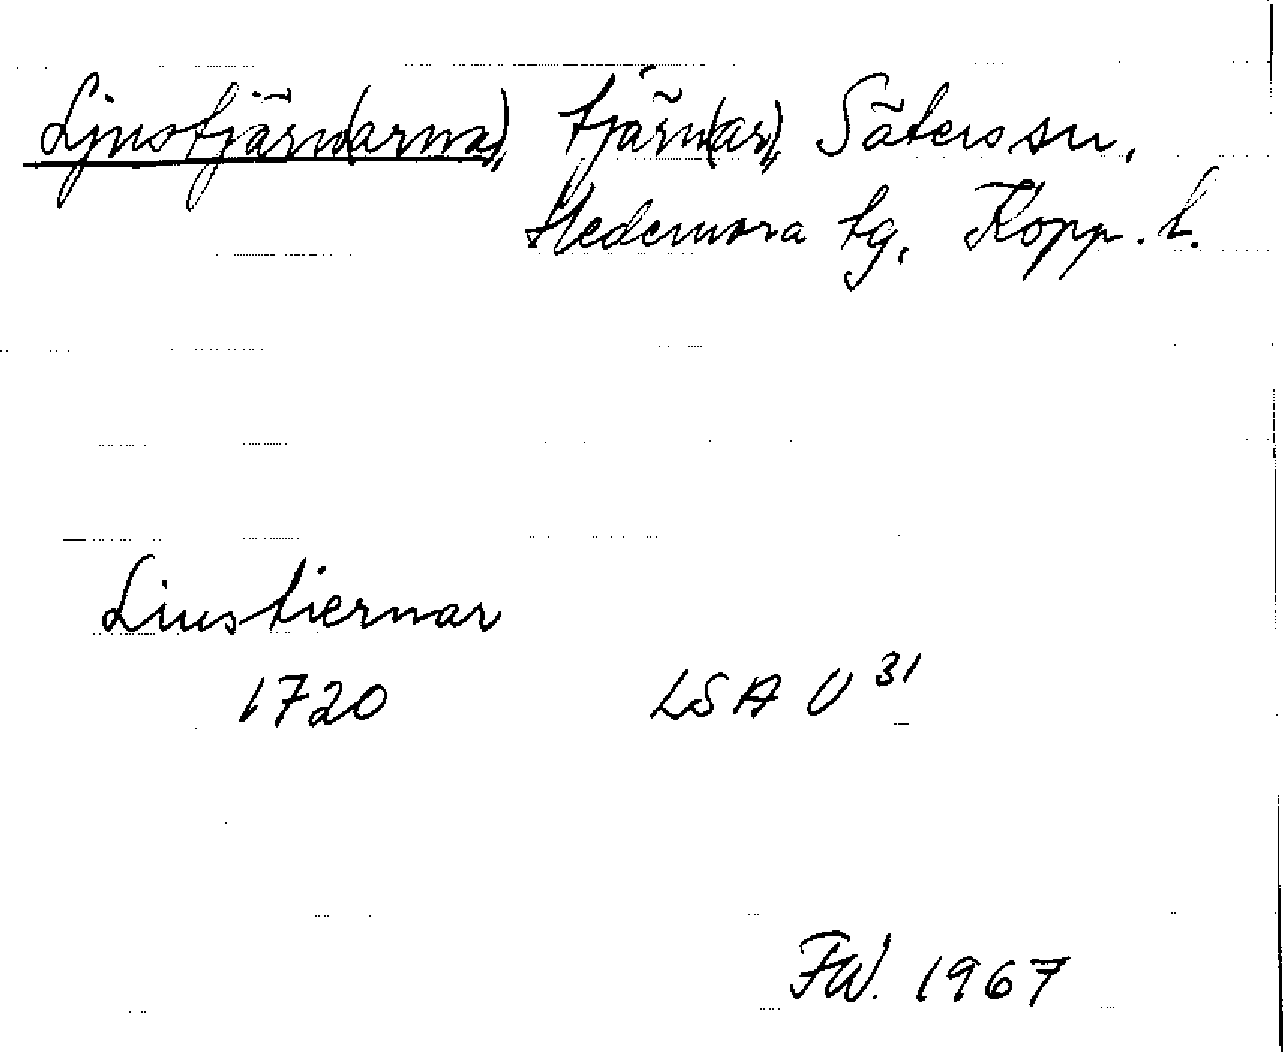 Ljustjärn(arna), tjärn(ar), Säters sn,
Hedemora tg, Kopp. l.
Liustiernar
1720 LSA U 31
FW. 1967